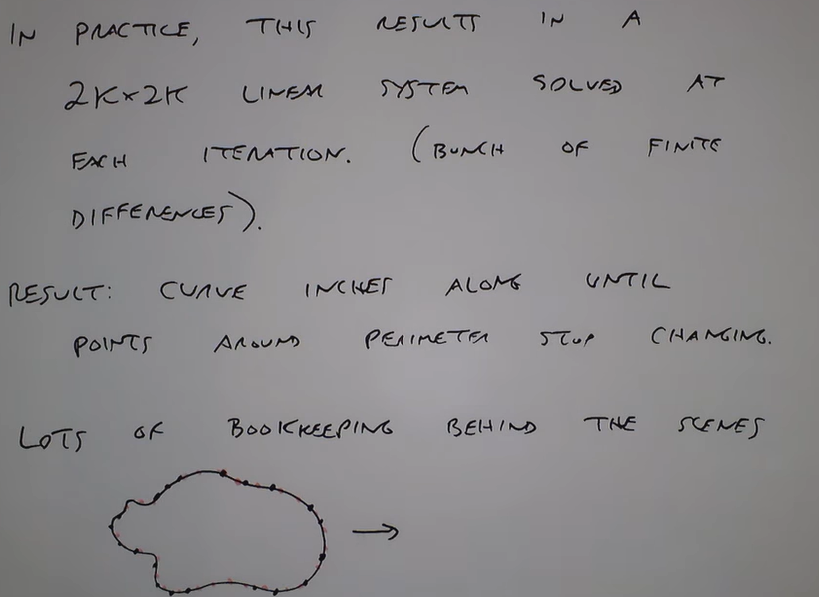 IN PRACTICE, THIS RESULTS IN A
2K×2K LINEAR SYSTEM SOLVED AT
EACH ITERATION. (BUNCH OF FINITE
DIFFERENCES).
RESULT: CURVE INCHES ALONG UNTIL
POINTS AROUND PERIMETER STOP CHANGING.
LOTS OF BOOKKEEPING BEHIND THE SCENES